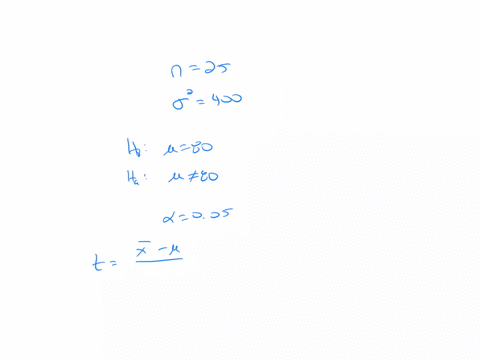 n = 25
σ² = 400
H₀: μ = 80
Hₐ: μ ≠ 80
α = 0.05
t = x̄ - μ